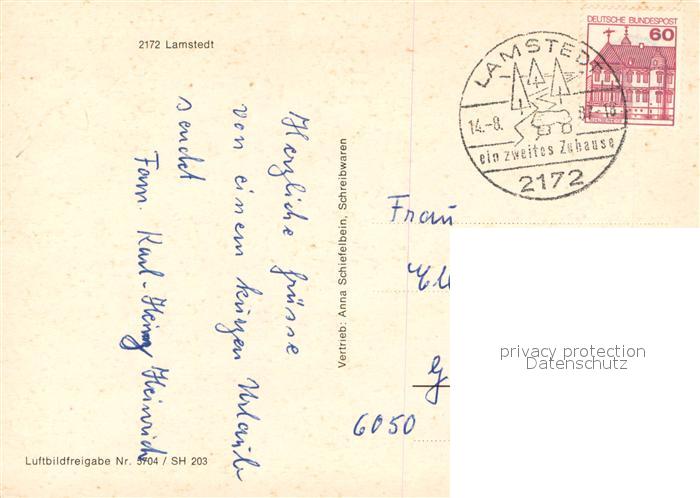 2172 Lamstedt
Herzliche Grüsse
von einem kurzen Urlaub
sendet
Fam. Karl-Heinz Heinrich
Vertrieb: Anna Schiefelbein, Schreibwaren
Luftbildfreigabe Nr. 5704 / SH 203
DEUTSCHE BUNDESPOST
60
LAMSTEDT
14.-8. 87-18
ein zweites Zuhause
2172
Frau
6050
privacy protection
Datenschutz